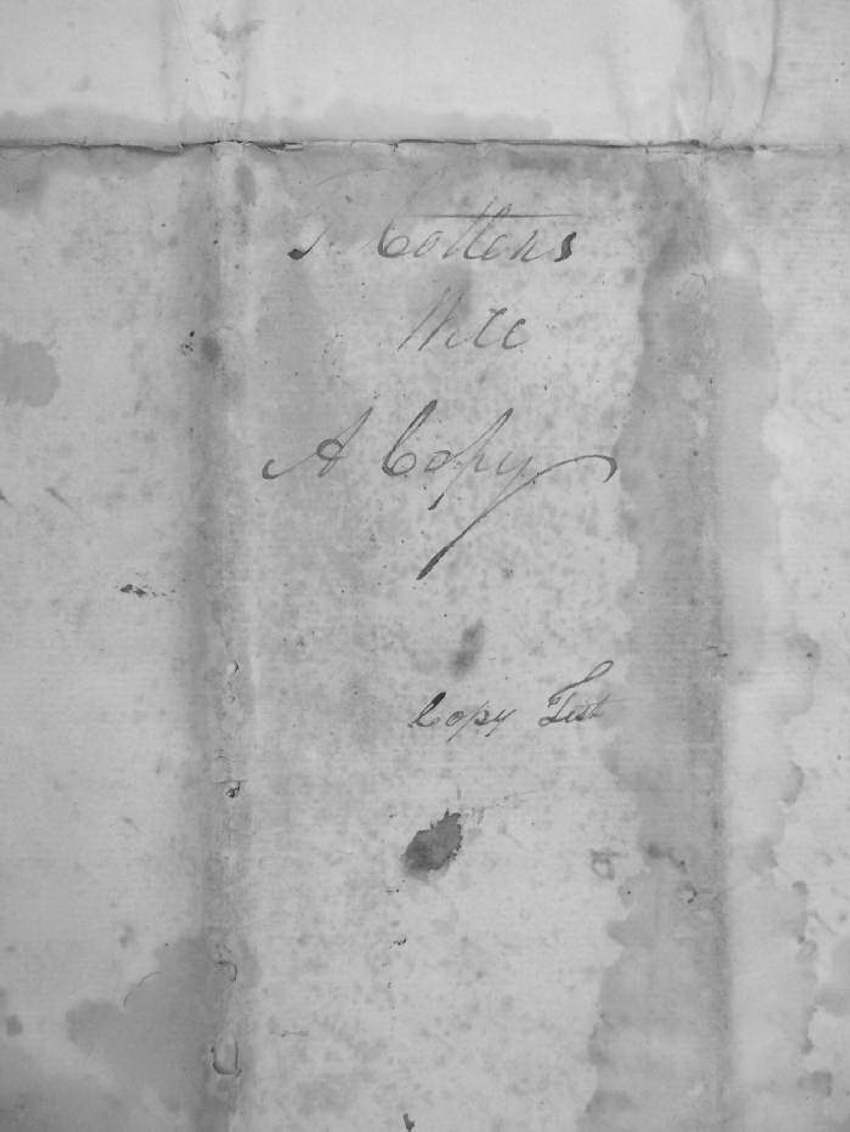 J. Cottens
Will
A Copy
Copy Test